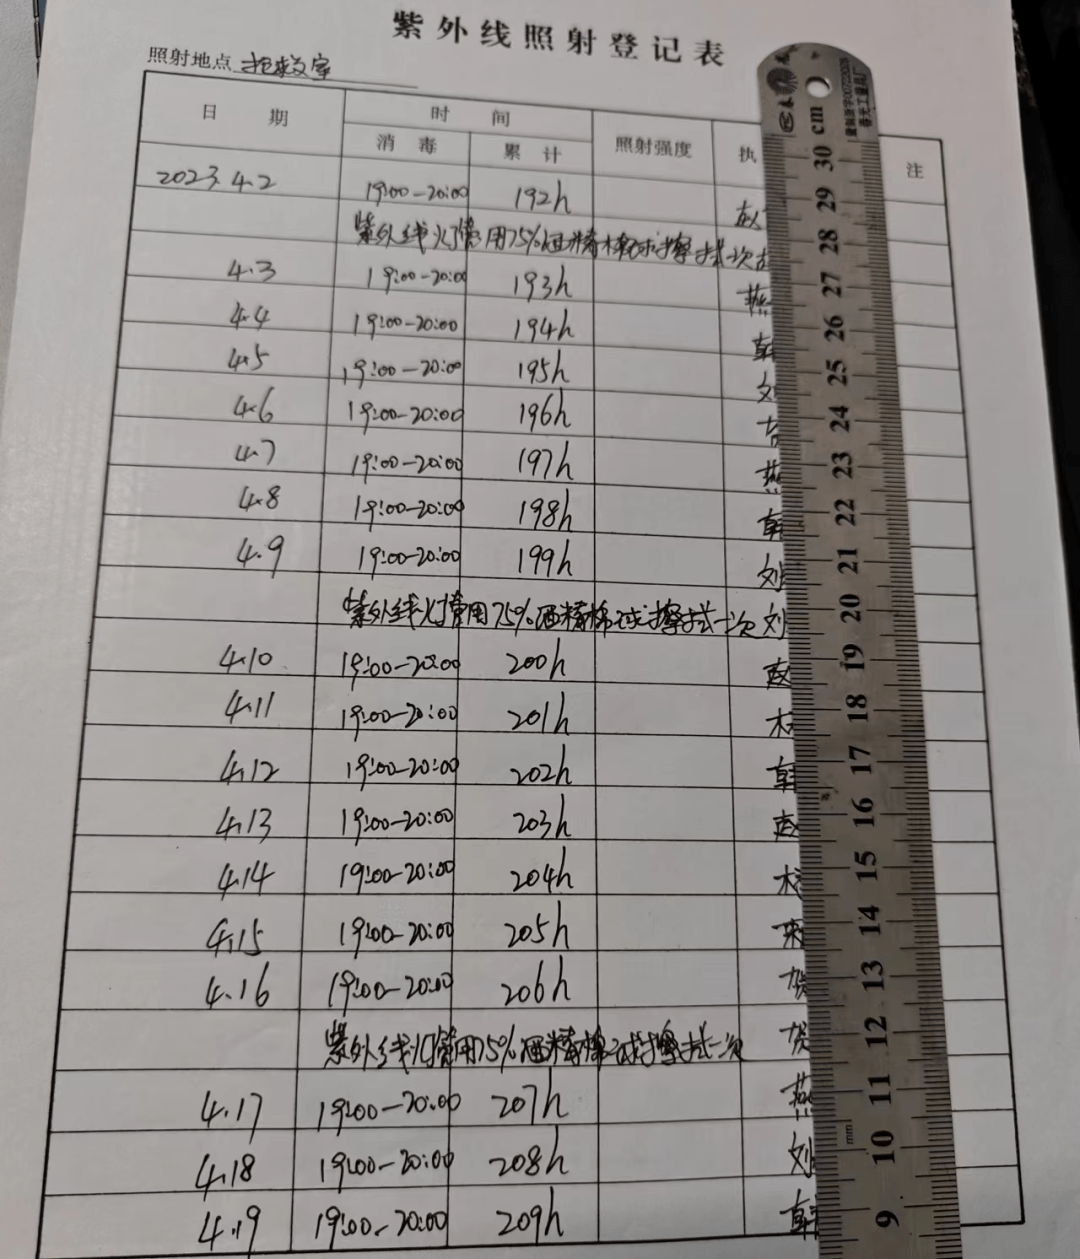 紫外线照射登记表
照射地点 抢救室
日 期 时 间 照射强度 执 注
消 毒 累 计
2023.4.2 19:00-20:00 192h 赵
紫外线灯管用75%酒精棉球擦拭一次
4.3 19:00-20:00 193h 燕
4.4 19:00-20:00 194h 韩
4.5 19:00-20:00 195h 刘
4.6 19:00-20:00 196h
4.7 19:00-20:00 197h 燕
4.8 19:00-20:00 198h 韩
4.9 19:00-20:00 199h 刘
紫外线灯管用75%酒精棉球擦拭一次 刘
4.10 19:00-20:00 200h 赵
4.11 19:00-20:00 201h
4.12 19:00-20:00 202h 韩
4.13 19:00-20:00 203h 赵
4.14 19:00-20:00 204h
4.15 19:00-20:00 205h
4.16 19:00-20:00 206h 贺
紫外线灯管用75%酒精棉球擦拭一次 贺
4.17 19:00-20:00 207h 燕
4.18 19:00-20:00 208h 刘
4.19 19:00-20:00 209h 韩
cm
30
29
28
27
26
25
24
23
22
21
20
19
18
17
16
15
14
13
12
11
10
9
mm